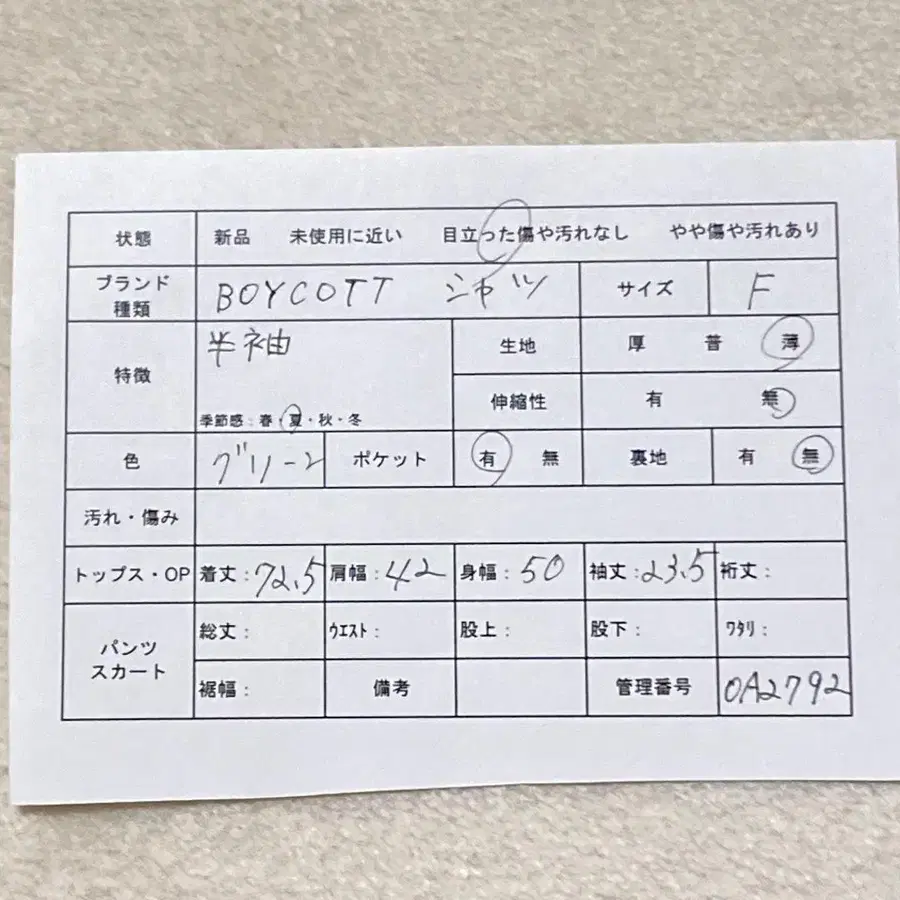 状態 新品 未使用に近い 目立った傷や汚れなし やや傷や汚れあり
ブランド 種類 BOYCOTT シャツ サイズ F
特徴 半袖 生地 厚 普 薄
季節感：春・夏・秋・冬 伸縮性 有 無
色 グリーン ポケット 有 無 裏地 有 無
汚れ・傷み
トップス・OP 着丈：72.5 肩幅：42 身幅：50 袖丈：23.5 裄丈：
パンツ スカート 総丈： ｳｴｽﾄ： 股上： 股下： ﾜﾀﾘ：
裾幅： 備考 管理番号 OA2792